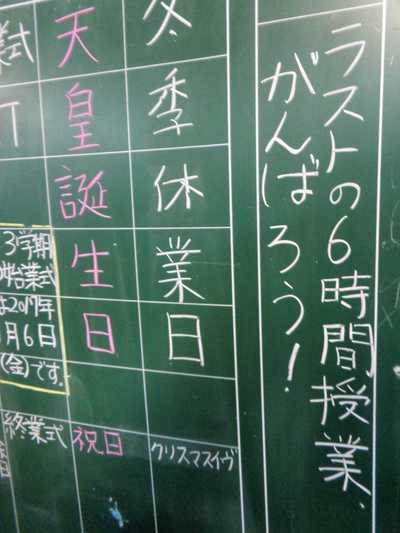 ラストの6時間授業、
がんばろう!
冬季休業日
クリスマスイヴ
天皇誕生日
祝日
業式
3学期
の始業式
は2017年
1月6日
(金)です。
終業式